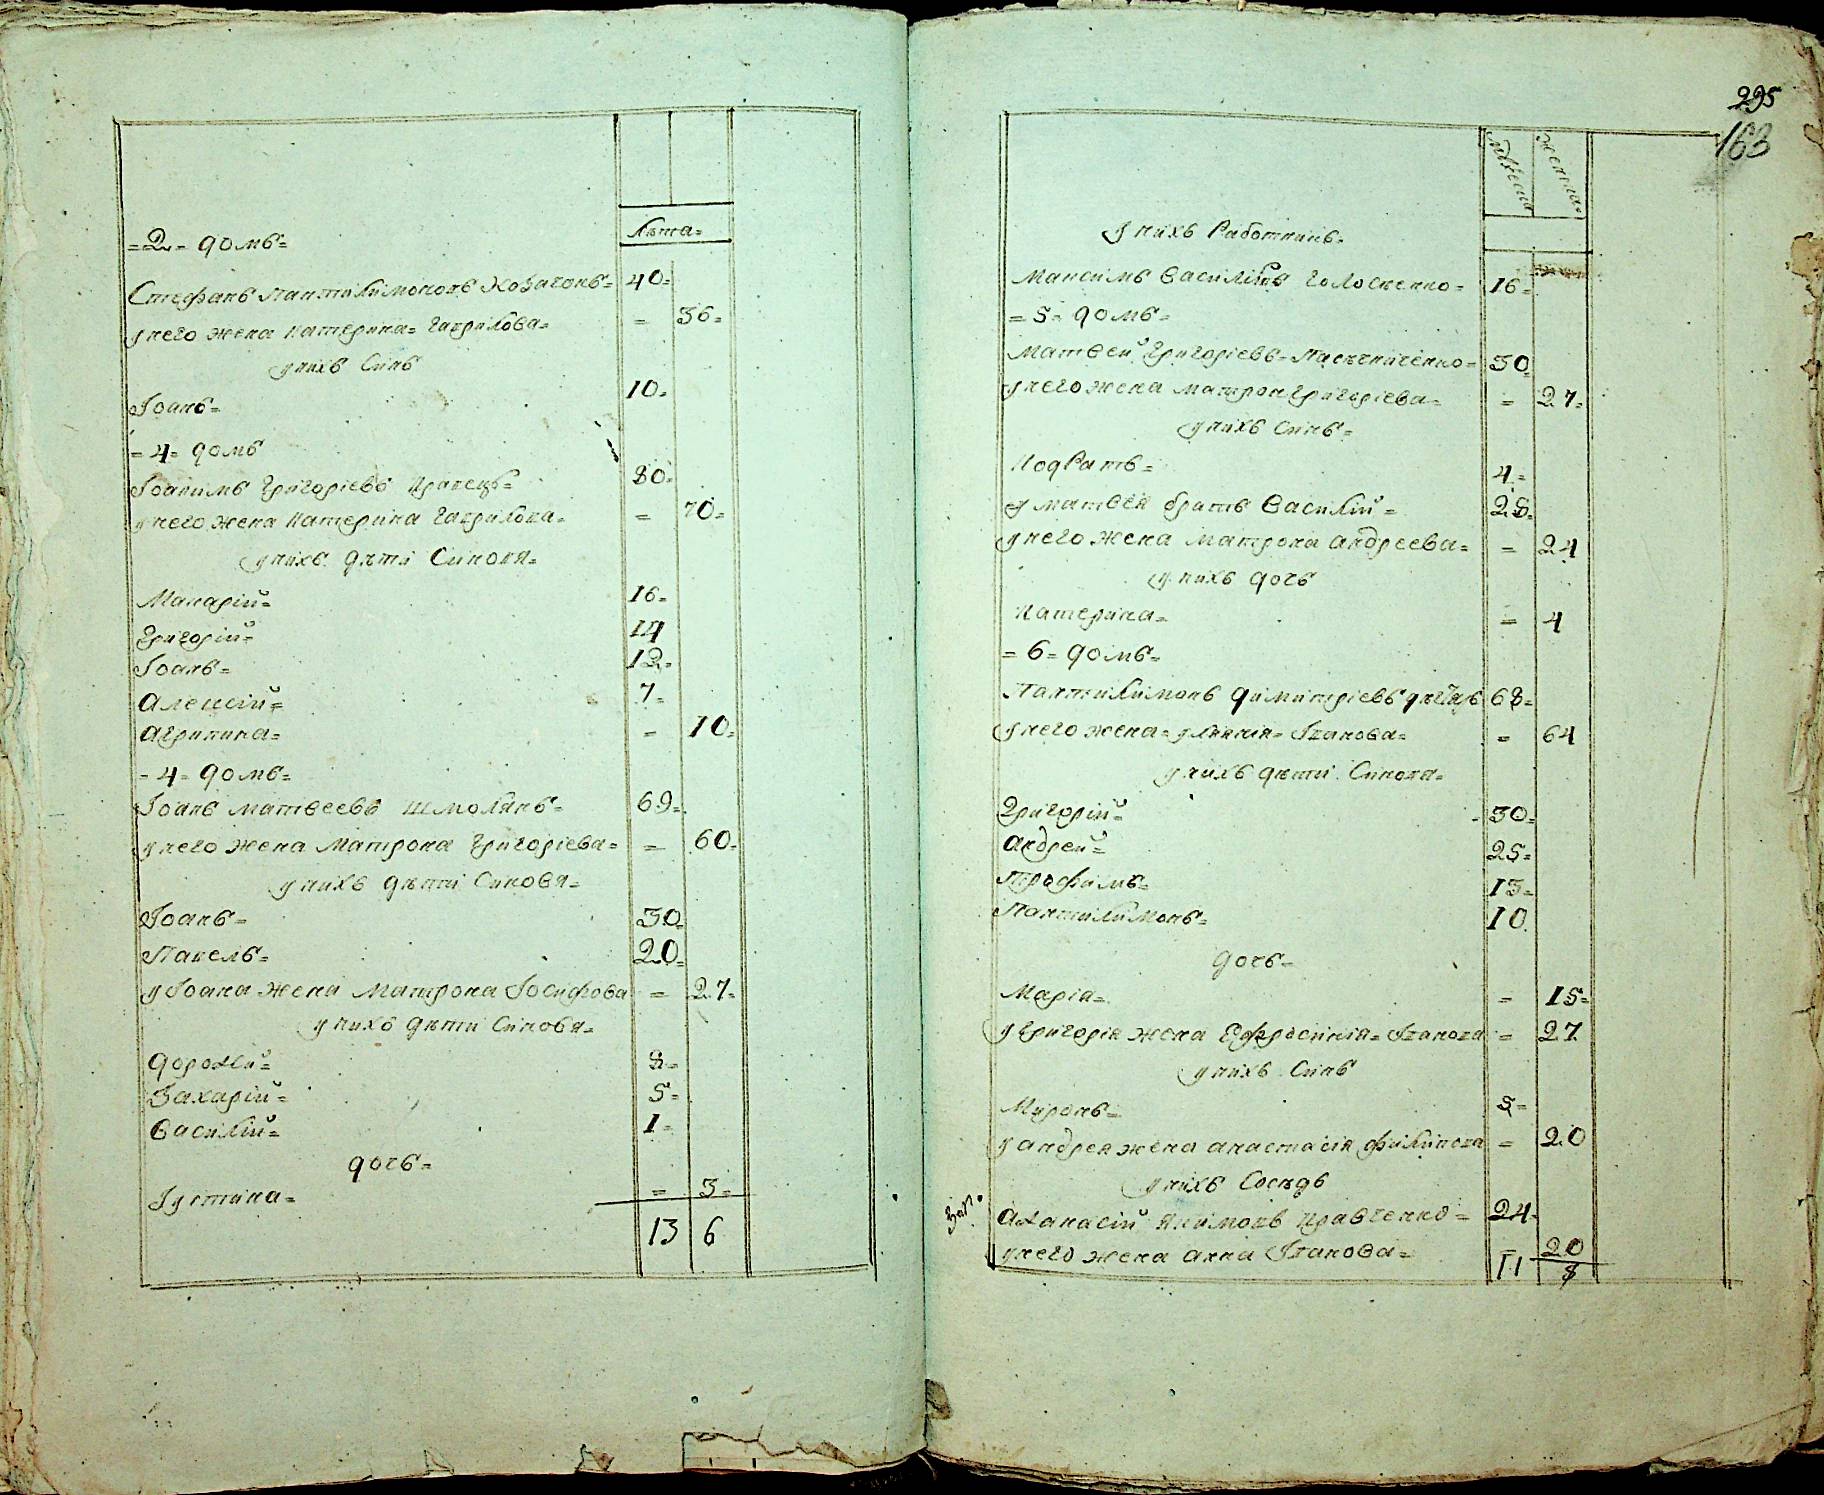 лѣта=
=2= домъ=
Стефанъ Пантилимоновъ Козачокъ= 40=
у него жена Катерина= Гаврилова= = 36=
у нихъ Синъ
Іоанъ= 10=
=4= домъ
Іоакимъ Григоріевъ Кравецъ= 80=
у него жена Катерина Гаврилова= = 70=
у нихъ дѣти Синовя=
Макарій= 16=
Григорій= 14
Іоанъ= 12=
Алексій= 7=
Агрипина= = 10=
=4= домъ=
Іоанъ Матвеевъ Шмолянъ= 69=
у него жена Матрона Григоріева= = 60=
у нихъ дѣти Синовя=
Іоанъ= 30=
Павелъ= 20=
у Іоана жена Матрона Іосифова = 27=
у нихъ дѣти Синовя=
Дорофей= 8=
Захарій= 5=
Василій= 1=
дочь=
Іустина= = 3=
13 6
295
163
мужеска женска
у нихъ Работникъ=
Максимъ Василіевъ = 16=
=5= домъ=
Матвей Григоріевъ= Пасѣчниченко= 30
у него жена Матрон Григоріева= = 27=
у нихъ синъ=
Кодратъ= 4=
у Матвея братъ Василій= 28=
у него жена Матрона Андреева= = 24
у нихъ дочь
Катерина= = 4
=6= домъ=
Пантилимонъ Димитріевъ 68=
у него жена= Улянія= Іванова= = 64
у нихъ дѣти Синовя=
Григорій= 30=
Андрей= 25=
Трофимъ= 13=
Пантилимонъ= 10
дочь=
Марія= = 15=
у Григорія жена Ефросинія= Іванова = 27
у нихъ Синъ
Миронъ= 8=
у Андрея жена Анастасія Филипова = 20
у нихъ Сосѣдъ
Зап.
Афанасій Якимовъ Кравченко= 24=
у него жена Анна Іванова= = 20
11 8